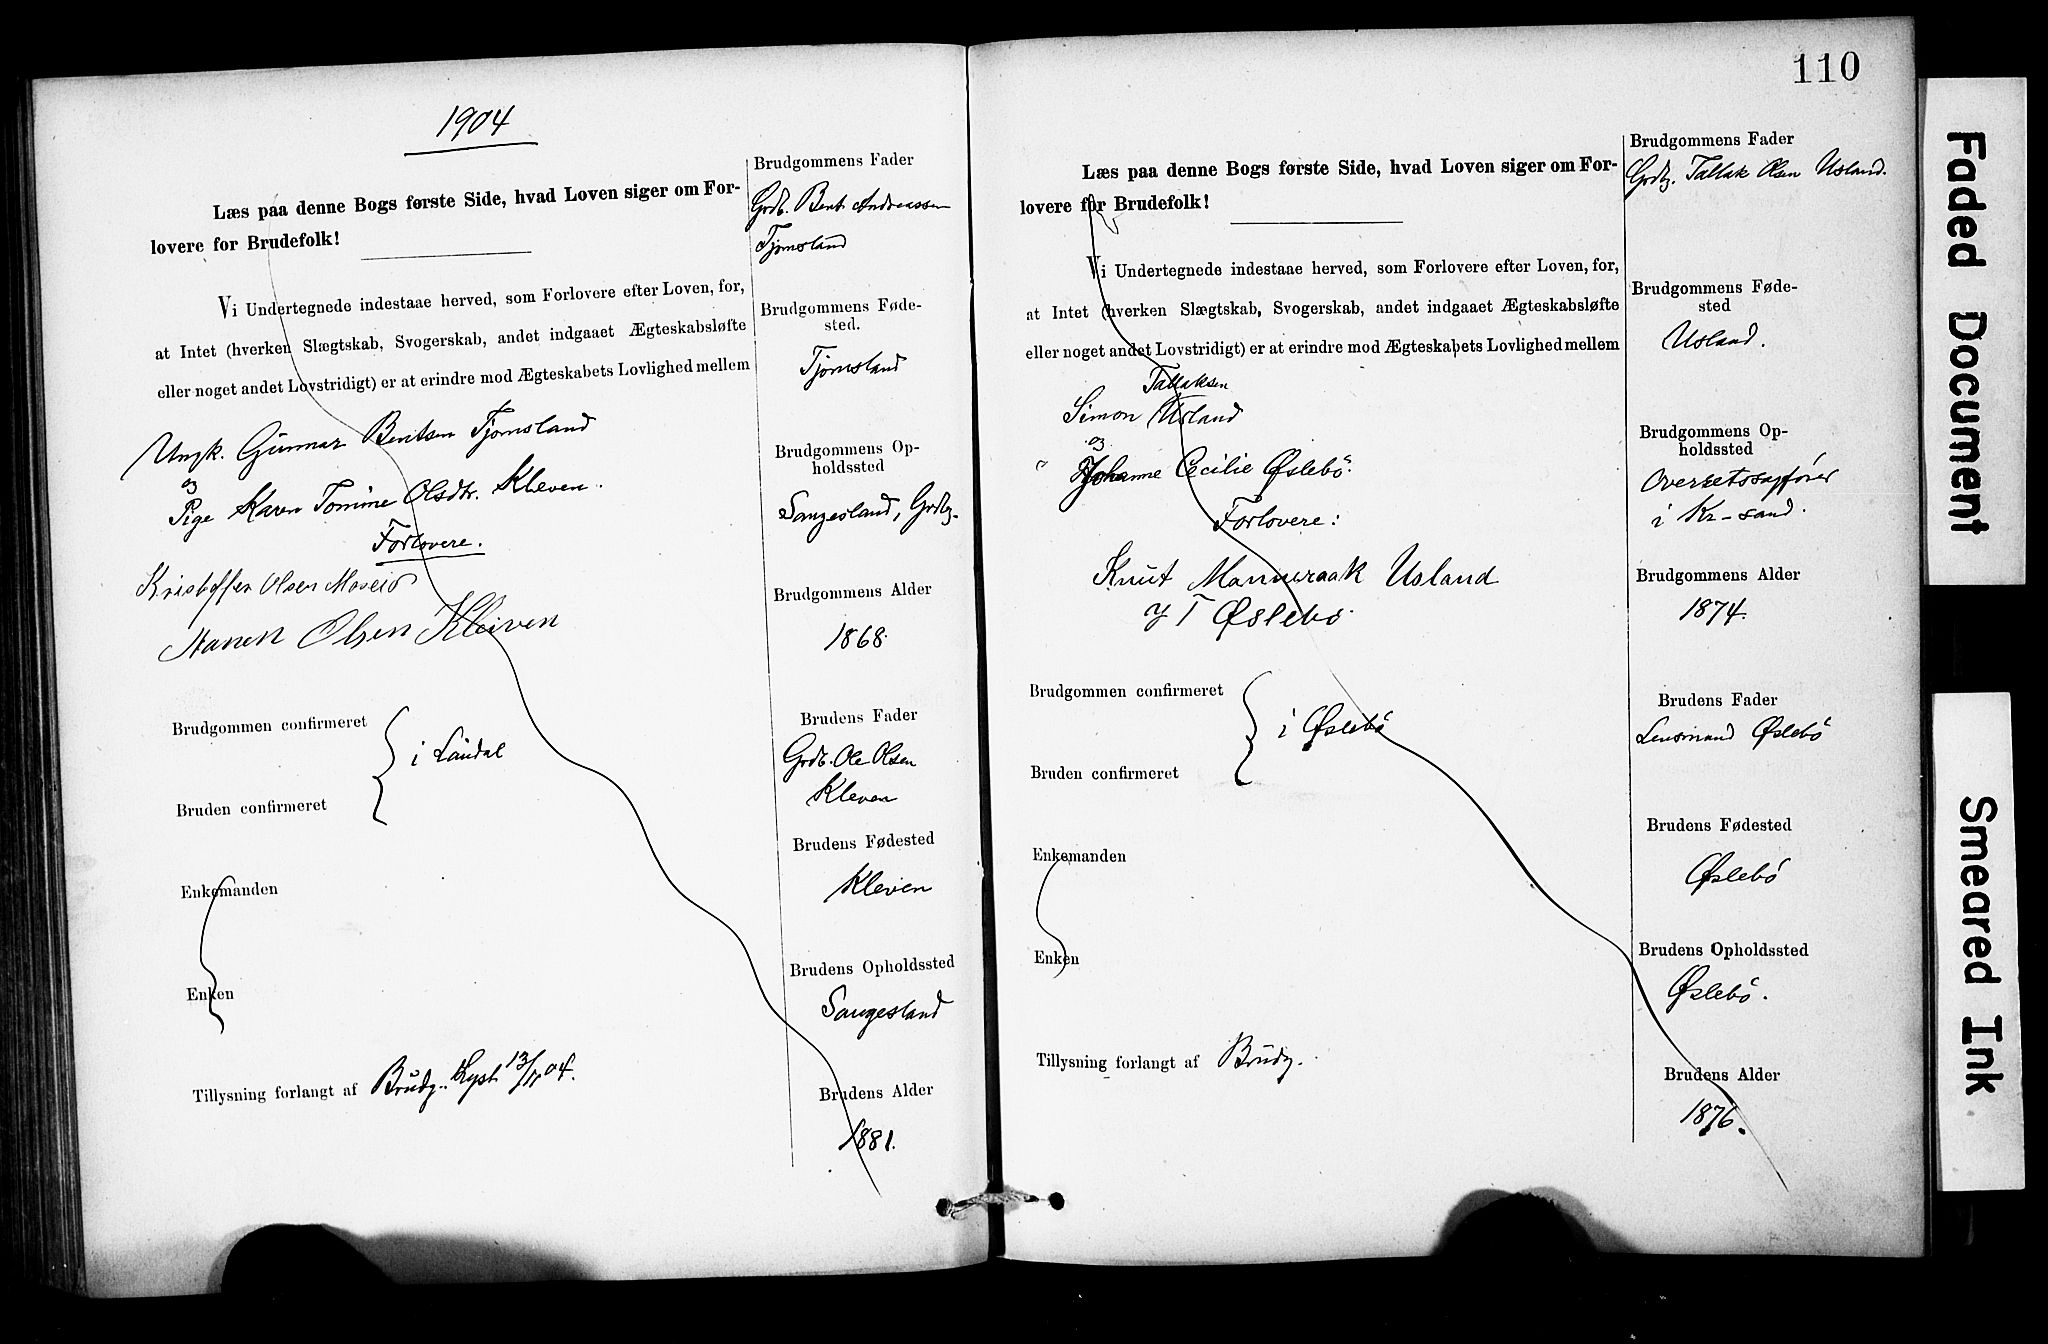 1904
Læs paa denne Bogs første Side, hvad Loven siger om For-
lovere for Brudefolk!
Vi Undertegnede indestaae herved, som Forlovere efter Loven, for,
at Intet (hverken Slægtskab, Svogerskab, andet indgaaet Ægteskabsløfte
eller noget andet Lovstridigt) er at erindre mod Ægteskabets Lovlighed mellem
Ungk. Gunnar Bentsen Tjomsland
og
Pige Karen Tomine Olsdtr. Kleven.
Forlovere.
Kristoffer Olsen Moseid
Olsen Kleiven
Brudgommen confirmeret
i Laudal
Bruden confirmeret
Enkemanden
Enken
Tillysning forlangt af Brudg. Lyst 13/11 04.
Brudgommens Fader
Grdb. Bent Andreassen
Tjomsland
Brudgommens Føde-
sted.
Tjomsland
Brudgommens Op-
holdssted
Sangesland, Grdbg.
Brudgommens Alder
1868.
Brudens Fader
Grdb. Ole Olsen
Kleven
Brudens Fødested
Kleven
Brudens Opholdssted
Sangesland
Brudens Alder
1881.
110
Læs paa denne Bogs første Side, hvad Loven siger om For-
lovere for Brudefolk!
Vi Undertegnede indestaae herved, som Forlovere efter Loven, for,
at Intet (hverken Slægtskab, Svogerskab, andet indgaaet Ægteskabsløfte
eller noget andet Lovstridigt) er at erindre mod Ægteskabets Lovlighed mellem
Tallaksen
Simon Usland
og
Johanne Cecilie Øslebö.
Forlovere:
Knut Mannevaak Usland
T Øslebö
Brudgommen confirmeret
i Øslebö
Bruden confirmeret
Enkemanden
Enken
Tillysning forlangt af Brudg.
Brudgommens Fader
Grdbg. Tallak Olsen Usland.
Brudgommens Føde-
sted
Usland.
Brudgommens Op-
holdssted
Overretssagfører
i Kr-sand.
Brudgommens Alder
1874.
Brudens Fader
Lensmand Øslebö
Brudens Fødested
Øslebö
Brudens Opholdssted
Øslebö.
Brudens Alder
1876.
Faded Document
Smeared Ink